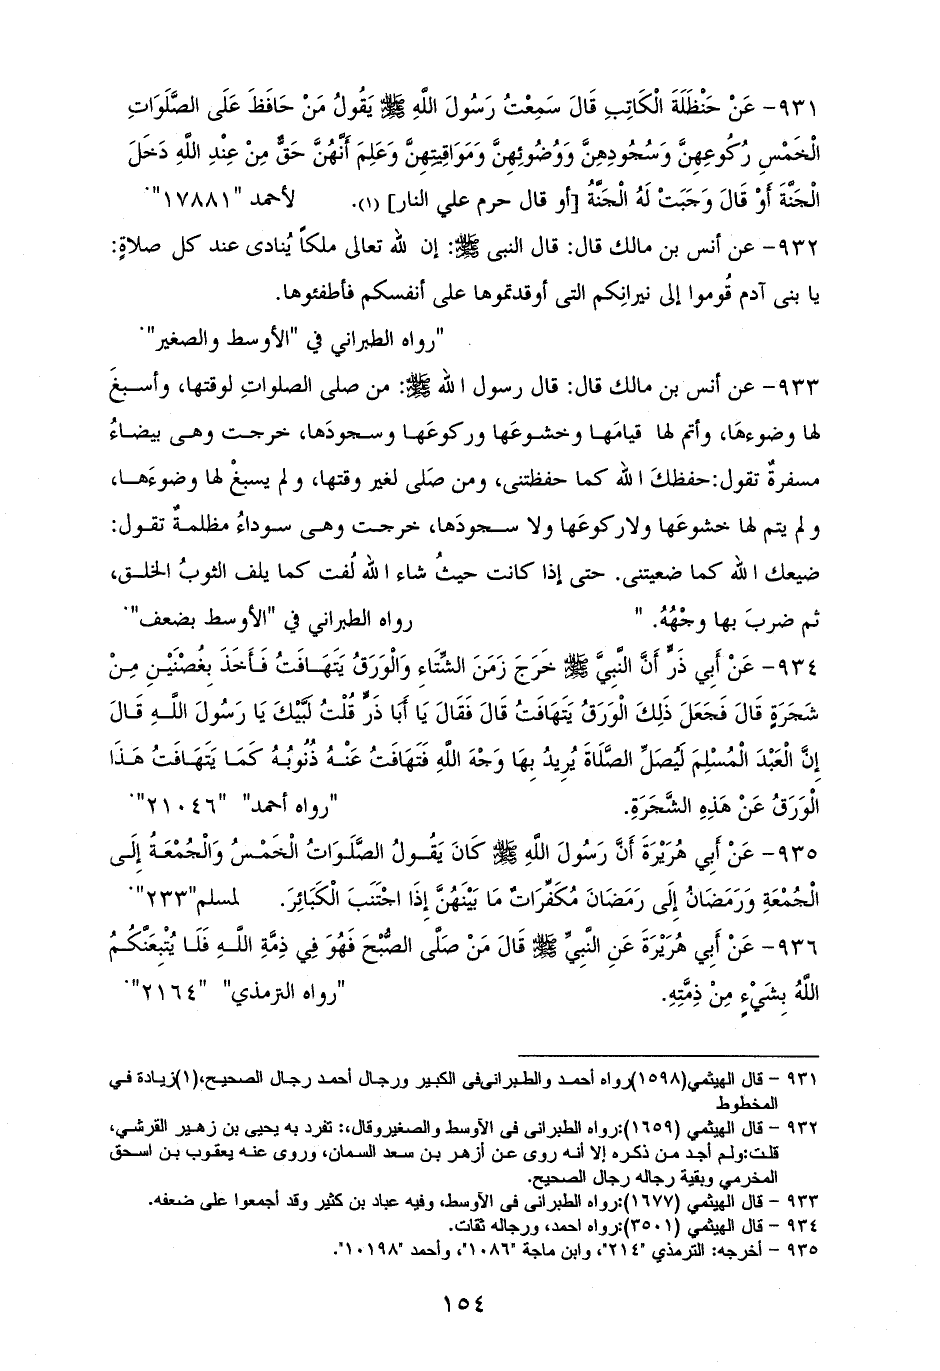 ٩٣١- عَنْ حَنْظَلَةَ الْكَاتِبِ قَالَ سَمِعْتُ رَسُولَ اللَّهِ ﷺ يَقُولُ مَنْ حَافَظَ عَلَى الصَّلَوَاتِ
الْخَمْسِ رُكُوعِهِنَّ وَسُجُودِهِنَّ وَوُضُوئِهِنَّ وَمَوَاقِيتِهِنَّ وَعَلِمَ أَنَّهُنَّ حَقٌّ مِنْ عِنْدِ اللَّهِ دَخَلَ
الْجَنَّةَ أَوْ قَالَ وَجَبَتْ لَهُ الْجَنَّةُ [أو قال حرم علي النار] (١). لأحمد "١٧٨٨١".
٩٣٢- عن أنس بن مالك قال: قال النبى ﷺ: إن لله تعالى ملكاً يُنادى عند كل صلاةٍ:
يا بنى آدم قُوموا إلى نيرانِكم التى أوقدتموها على أنفسكم فأطفئوها.
"رواه الطبراني في "الأوسط والصغير".
٩٣٣- عن أنس بن مالك قال: قال رسول الله ﷺ: من صلى الصلواتِ لوقتها، وأسبغَ
لها وضوءهَا، وأتم لها قيامَها وخشوعَها وركوعَها وسجودَها، خرجت وهى بيضاءُ
مسفرةٌ تقول:حفظكَ الله كما حفظتنى، ومن صَلى لغير وقتها، ولم يسبغْ لها وضوءَها،
ولم يتم لها خشوعَها ولاركوعَها ولا سجودَها، خرجت وهى سوداءُ مظلمةٌ تقول:
ضيعك الله كما ضعيتنى. حتى إذا كانت حيثُ شاء الله لُفت كما يلف الثوبُ الخلق،
ثم ضربَ بها وجْهُهُ. " رواه الطبراني في "الأوسط بضعف".
٩٣٤- عَنْ أَبِي ذَرٍّ أَنَّ النَّبِيَّ ﷺ خَرَجَ زَمَنَ الشِّتَاءِ وَالْوَرَقُ يَتَهَافَتُ فَأَخَذَ بِغُصْنَيْنِ مِنْ
شَجَرَةٍ قَالَ فَجَعَلَ ذَلِكَ الْوَرَقُ يَتَهَافَتُ قَالَ فَقَالَ يَا أَبَا ذَرٍّ قُلْتُ لَبَّيْكَ يَا رَسُولَ اللَّهِ قَالَ
إِنَّ الْعَبْدَ الْمُسْلِمَ لَيُصَلِّ الصَّلَاةَ يُرِيدُ بِهَا وَجْهَ اللَّهِ فَتَهَافَتُ عَنْهُ ذُنُوبُهُ كَمَا يَتَهَافَتُ هَذَا
الْوَرَقُ عَنْ هَذِهِ الشَّجَرَةِ. "رواه أحمد" "٢١٠٤٦".
٩٣٥- عَنْ أَبِي هُرَيْرَةَ أَنَّ رَسُولَ اللَّهِ ﷺ كَانَ يَقُولُ الصَّلَوَاتُ الْخَمْسُ وَالْجُمْعَةُ إِلَى
الْجُمْعَةِ وَرَمَضَانُ إِلَى رَمَضَانَ مُكَفِّرَاتٌ مَا بَيْنَهُنَّ إِذَا اجْتَنَبَ الْكَبَائِرَ. لمسلم"٢٣٣".
٩٣٦- عَنْ أَبِي هُرَيْرَةَ عَنِ النَّبِيِّ ﷺ قَالَ مَنْ صَلَّى الصُّبْحَ فَهُوَ فِي ذِمَّةِ اللَّهِ فَلَا يُتْبِعَنَّكُمُ
اللَّهُ بِشَيْءٍ مِنْ ذِمَّتِهِ. "رواه الترمذي" "٢١٦٤".
٩٣١ - قال الهيثمي(١٥٩٨)رواه أحمد والطبرانىفى الكبير ورجال أحمد رجال الصحيح،(١)زيادة في
المخطوط
٩٣٢ - قال الهيثمي (١٦٥٩):رواه الطبرانى فى الأوسط والصغيروقال،: تفرد به يحيى بن زهير القرشي،
قلت:ولم أجد من ذكره إلا أنه روى عن أزهر بن سعد السمان، وروى عنه يعقوب بن اسحق
المخرمي وبقية رجاله رجال الصحيح.
٩٣٣ - قال الهيثمي (١٦٧٧):رواه الطبرانى فى الأوسط، وفيه عباد بن كثير وقد أجمعوا على ضعفه.
٩٣٤ - قال الهيثمي (٣٥٠١):رواه احمد، ورجاله ثقات.
٩٣٥ - أخرجه: الترمذي "٢١٤"، وابن ماجة "١٠٨٦"، وأحمد "١٠١٩٨".
١٥٤